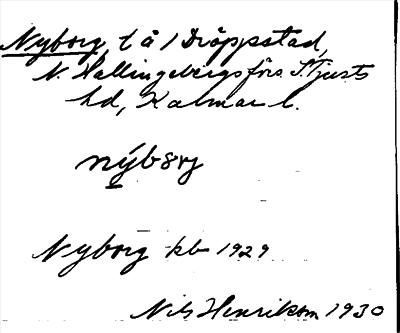 Nyborg, t å 1 Dröppstad,
N. Hallingebergs förs. S. Tjusts
hd, Kalmar l.
nýbørj
Nyborg kb 1929
Nils Henrikson 1930